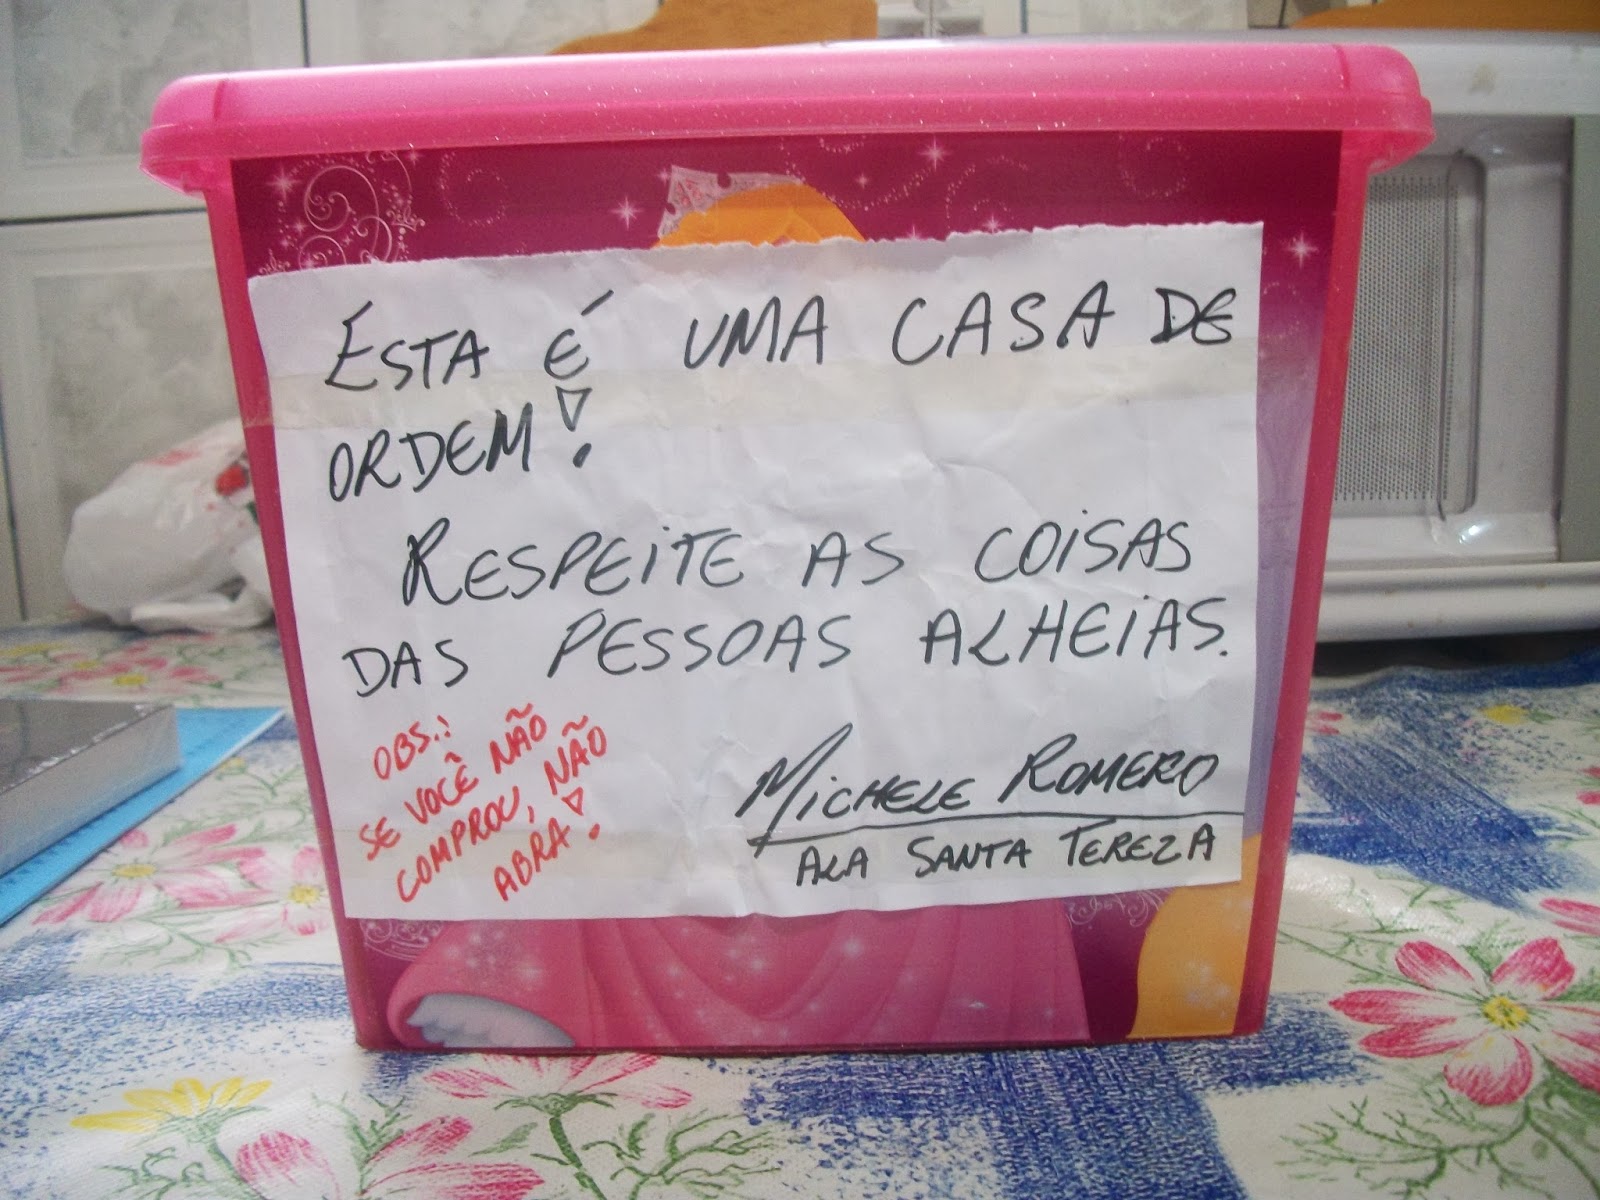 ESTA É UMA CASA DE
ORDEM!
RESPEITE AS COISAS
DAS PESSOAS ALHEIAS.
OBS.:
SE VOCÊ NÃO
COMPROU, NÃO
ABRA!
MICHELE ROMERO
ALA SANTA TEREZA